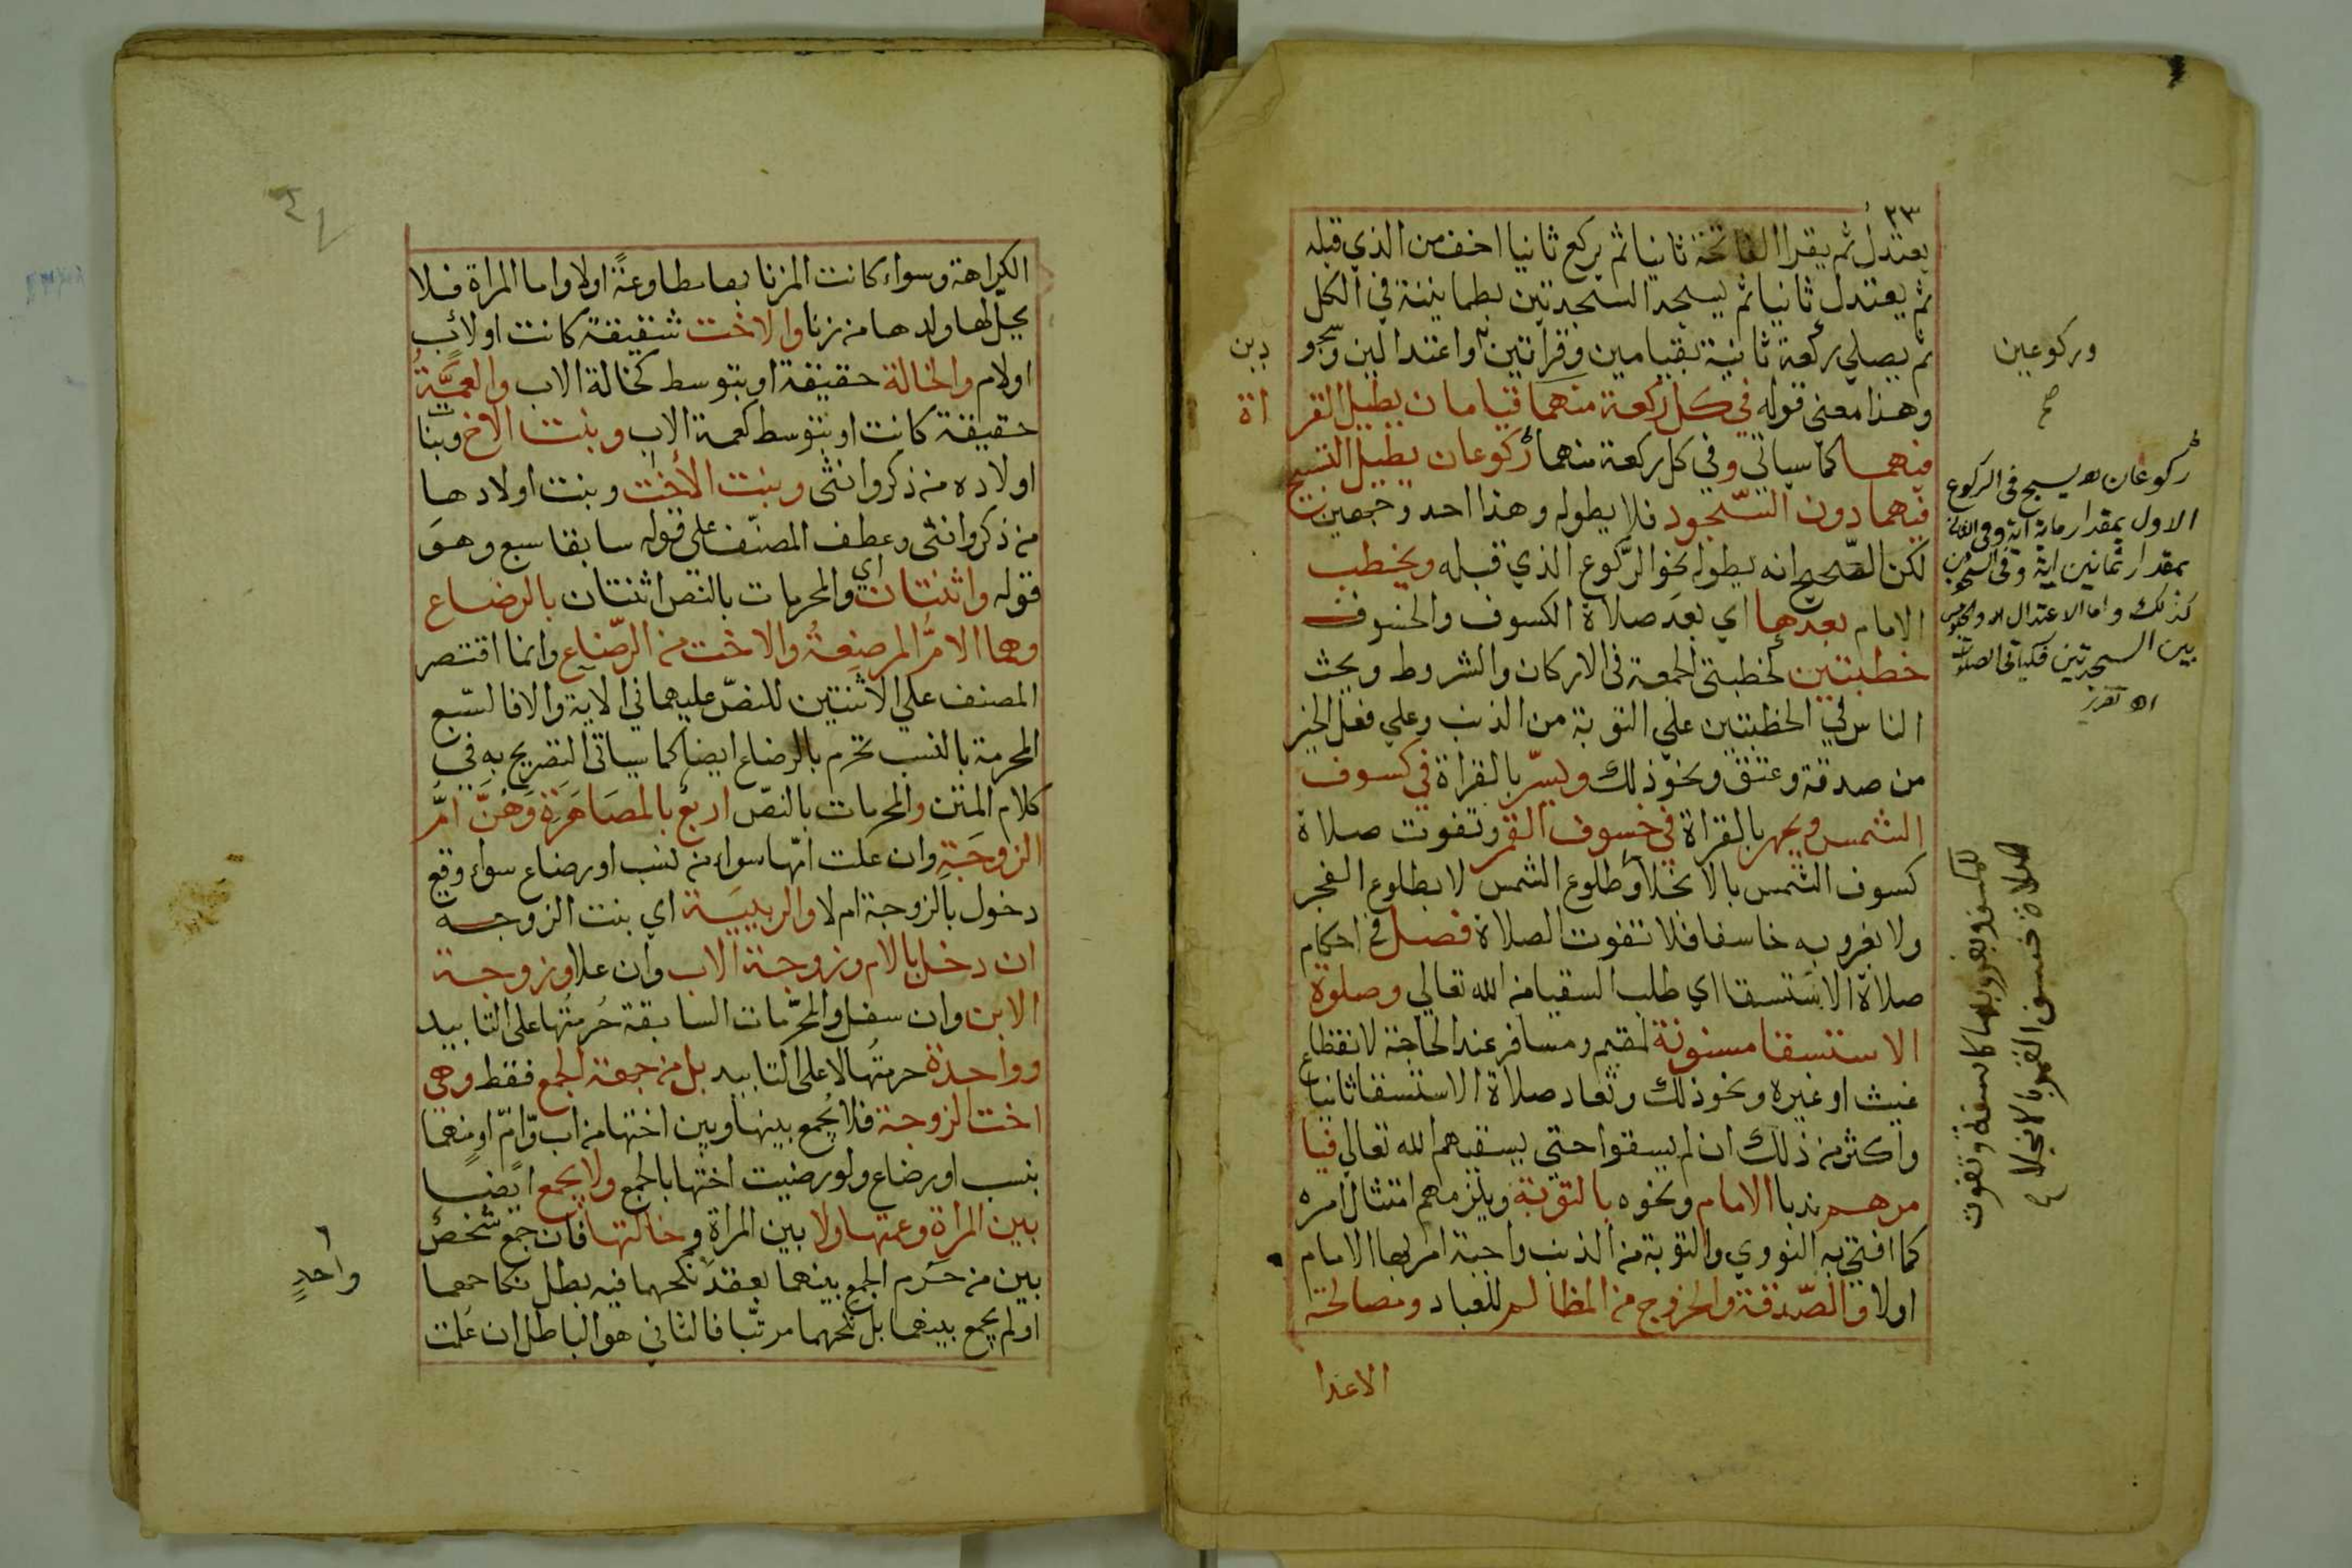 ٢٣
يعتدل ثم يقرا الفاتحة ثانيا ثم يركع ثانيا اخف من الذي قبله
ثم يعتدل ثانيا ثم يسجد السجدتين بطمانينة في الكل
ثم يصلي ركعة ثانية بقيامين وقراتين واعتدالين وسجو
دين
وركوعين
صح
وهذا معنى قوله في كل ركعة منهما قيامان يطيل القر
اة
فيهما كما سياتي وفي كل ركعة منهما ركوعان يطيل التسبيح
فيهما دون السجود فلا يطوله وهذا احد وجهين
لكن الصحيح انه يطوله نحو الركوع الذي قبله ويخطب
الامام بعدهما اي بعد صلاة الكسوف والخسوف
خطبتين كخطبتي الجمعة في الاركان والشروط ويحث
الناس في الخطبتين علي التوبة من الذنب وعلي فعل الخير
من صدقة وعتق ونحو ذلك ويسر بالقراة في كسوف
الشمس ويجهر بالقراة في خسوف القمر وتفوت صلاة
كسوف الشمس بالانجلاء وطلوع الشمس لا بطلوع الفجر
ولا بغروبه خاسفا فلا تفوت الصلاة فصل في احكام
صلاة الاستسقا اي طلب السقيا من الله تعالي وصلوة
الاستسقا مسنونة لمقيم ومسافر عند الحاجة لانقطاع
غيث او غيره ونحو ذلك وتعاد صلاة الاستسقا ثانيا
واكثر من ذلك ان لم يسقوا حتي يسقيهم الله تعالي فيا
مرهم ندبا الامام ونحوه بالتوبة ويلزمهم امتثال امره
كما افتي به النووي والتوبة من الذنب واجبة امر بها الامام
اولا والصدقة والخروج من المظالم للعباد ومصالحة
الاعدا
ركوعان اه يسبح في الركوع
الاول بمقدار ماية اية وفي الثاني
بمقدار ثمانين اية وفي السجود
كذلك واما الاعتدال الاول والجلوس
بين السجدتين فكباقي الصلوات
اه تقرير
للكسوف وبغروبها كاسفة وتفوت
صلاة خسوف القمر بالانجلاء
الكراهة وسواء كانت المزنا بها مطاوعة اولا واما المراة فلا
يحل لها ولدها من زنا والاخت شقيقة كانت او لاب
او لام والخالة حقيقة او بتوسط كخالة الاب والعمة
حقيقة كانت او بتوسط كعمة الاب وبنت الاخ وبنا
اولاده من ذكر وانثى وبنت الاخت وبنت اولادها
من ذكر وانثى وعطف المصنف علي قوله سابقا سبع وهو
قوله واثنتان اي والمحرمات بالنص اثنتان بالرضاع
وهما الام المرضعة والاخت من الرضاع وانما اقتصر
المصنف علي الاثنتين للنص عليهما في الاية والا فالسبع
المحرمة بالنسب تحرم بالرضاع ايضا كما سياتي التصريح به في
كلام المتن والمحرمات بالنص اربع بالمصاهرة وهن ام
الزوجة وان علت امها سواء من نسب او رضاع سواء وقع
دخول بالزوجة ام لا والربيبة اي بنت الزوجة
ان دخل بالام وزوجة الاب وان علا وزوجة
الابن وان سفل والمحرمات السابقة حرمتها على التابيد
وواحدة حرمتها لا على التابيد بل من جهة الجمع فقط وهي
اخت الزوجة فلا يجمع بينها وبين اختها من اب وام او منهما
بنسب او رضاع ولو رضيت اختها بالجمع ولا يجمع ايضا
بين المراة وعمتها ولا بين المراة وخالتها فان جمع شخص
بين من حرم الجمع بينهما بعقد نكحهما فيه بطل نكاحهما
واحدٍ
او لم يجمع بينهما بل نكحهما مرتبا فالثاني هو الباطل ان علمت